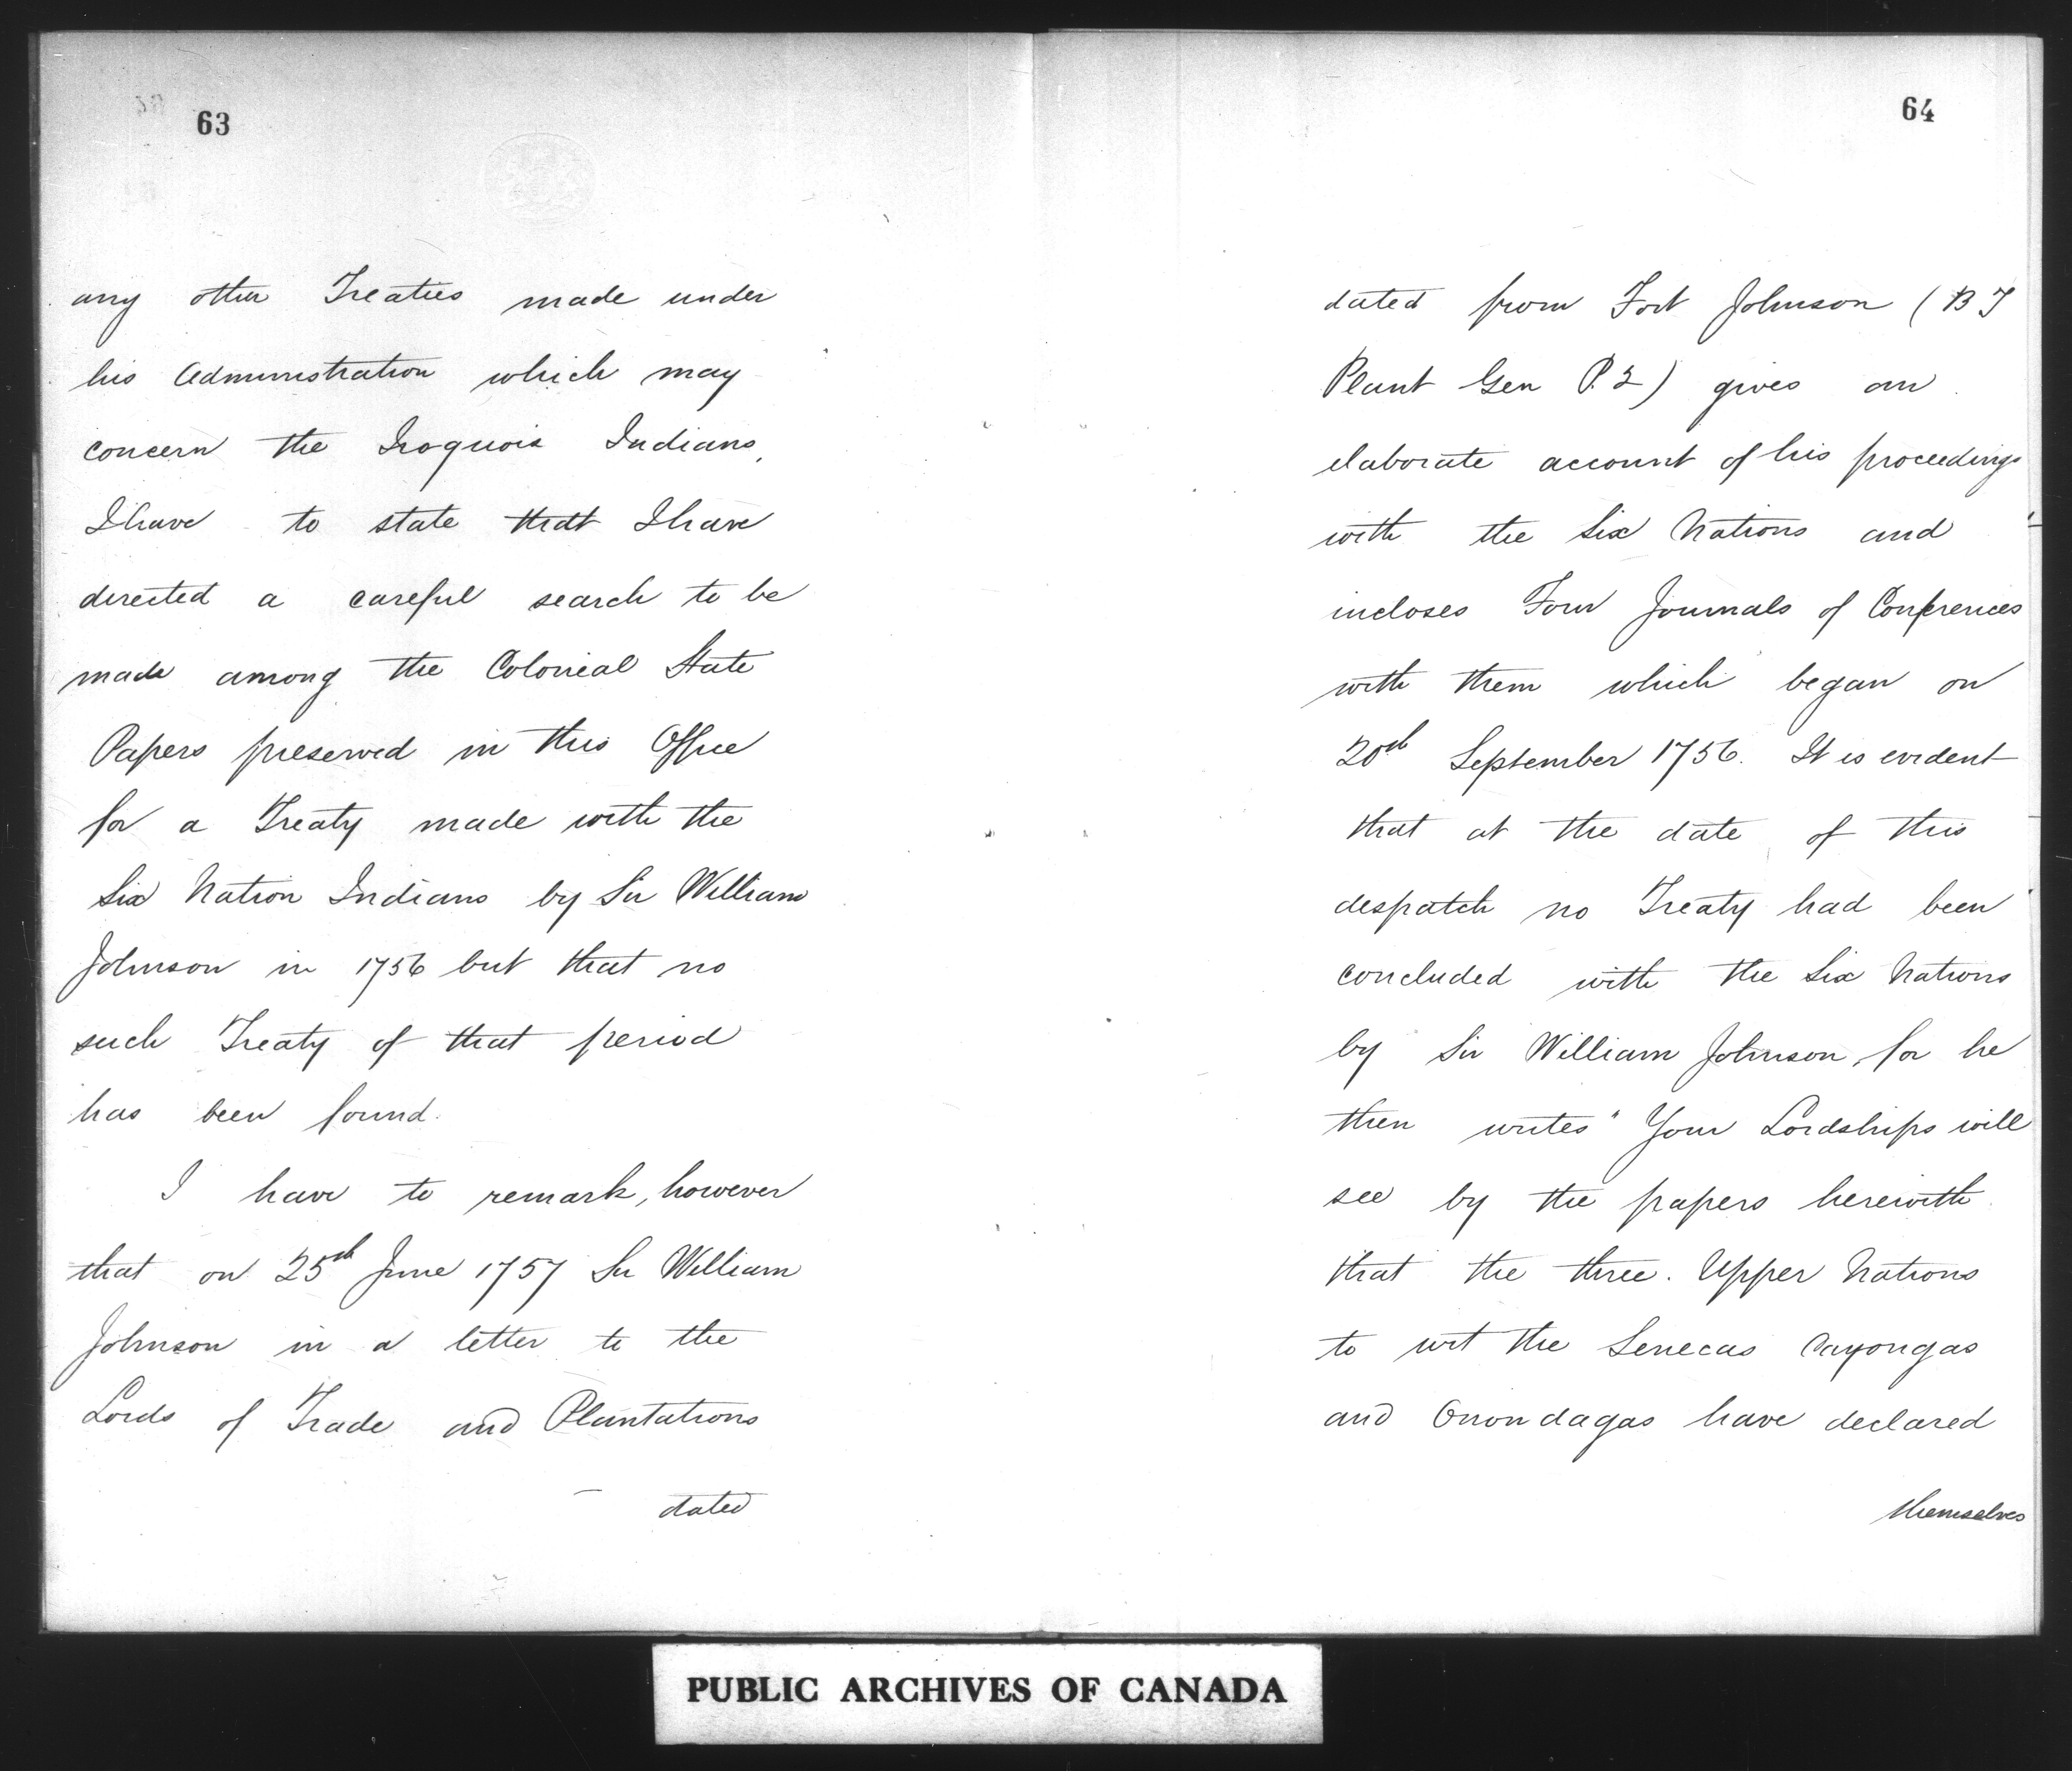 63
any other Treaties made under
his Administration which may
concern the Iroquois Indians,
I have to state that I have
directed a careful search to be
made among the Colonial State
Papers preserved in this Office
for a Treaty made with the
Six Nation Indians by Sir William
Johnson in 1756 but that no
such Treaty of that period
has been found.
I have to remark, however
that on 25th June 1757 Sir William
Johnson in a letter to the
Lords of Trade and Plantations
dated
64
dated from Fort Johnson (B T
Plant Gen P. 2) gives an
elaborate account of his proceedings
with the Six Nations and
incloses Four Journals of Conferences
with them which began on
20th September 1756. It is evident
that at the date of this
despatch no Treaty had been
concluded with the Six Nations
by Sir William Johnson, for he
then writes "Your Lordships will
see by the papers herewith
that the three. Upper Nations
to wit the Senecas Cayongas
and Onondagas have declared
themselves
PUBLIC ARCHIVES OF CANADA